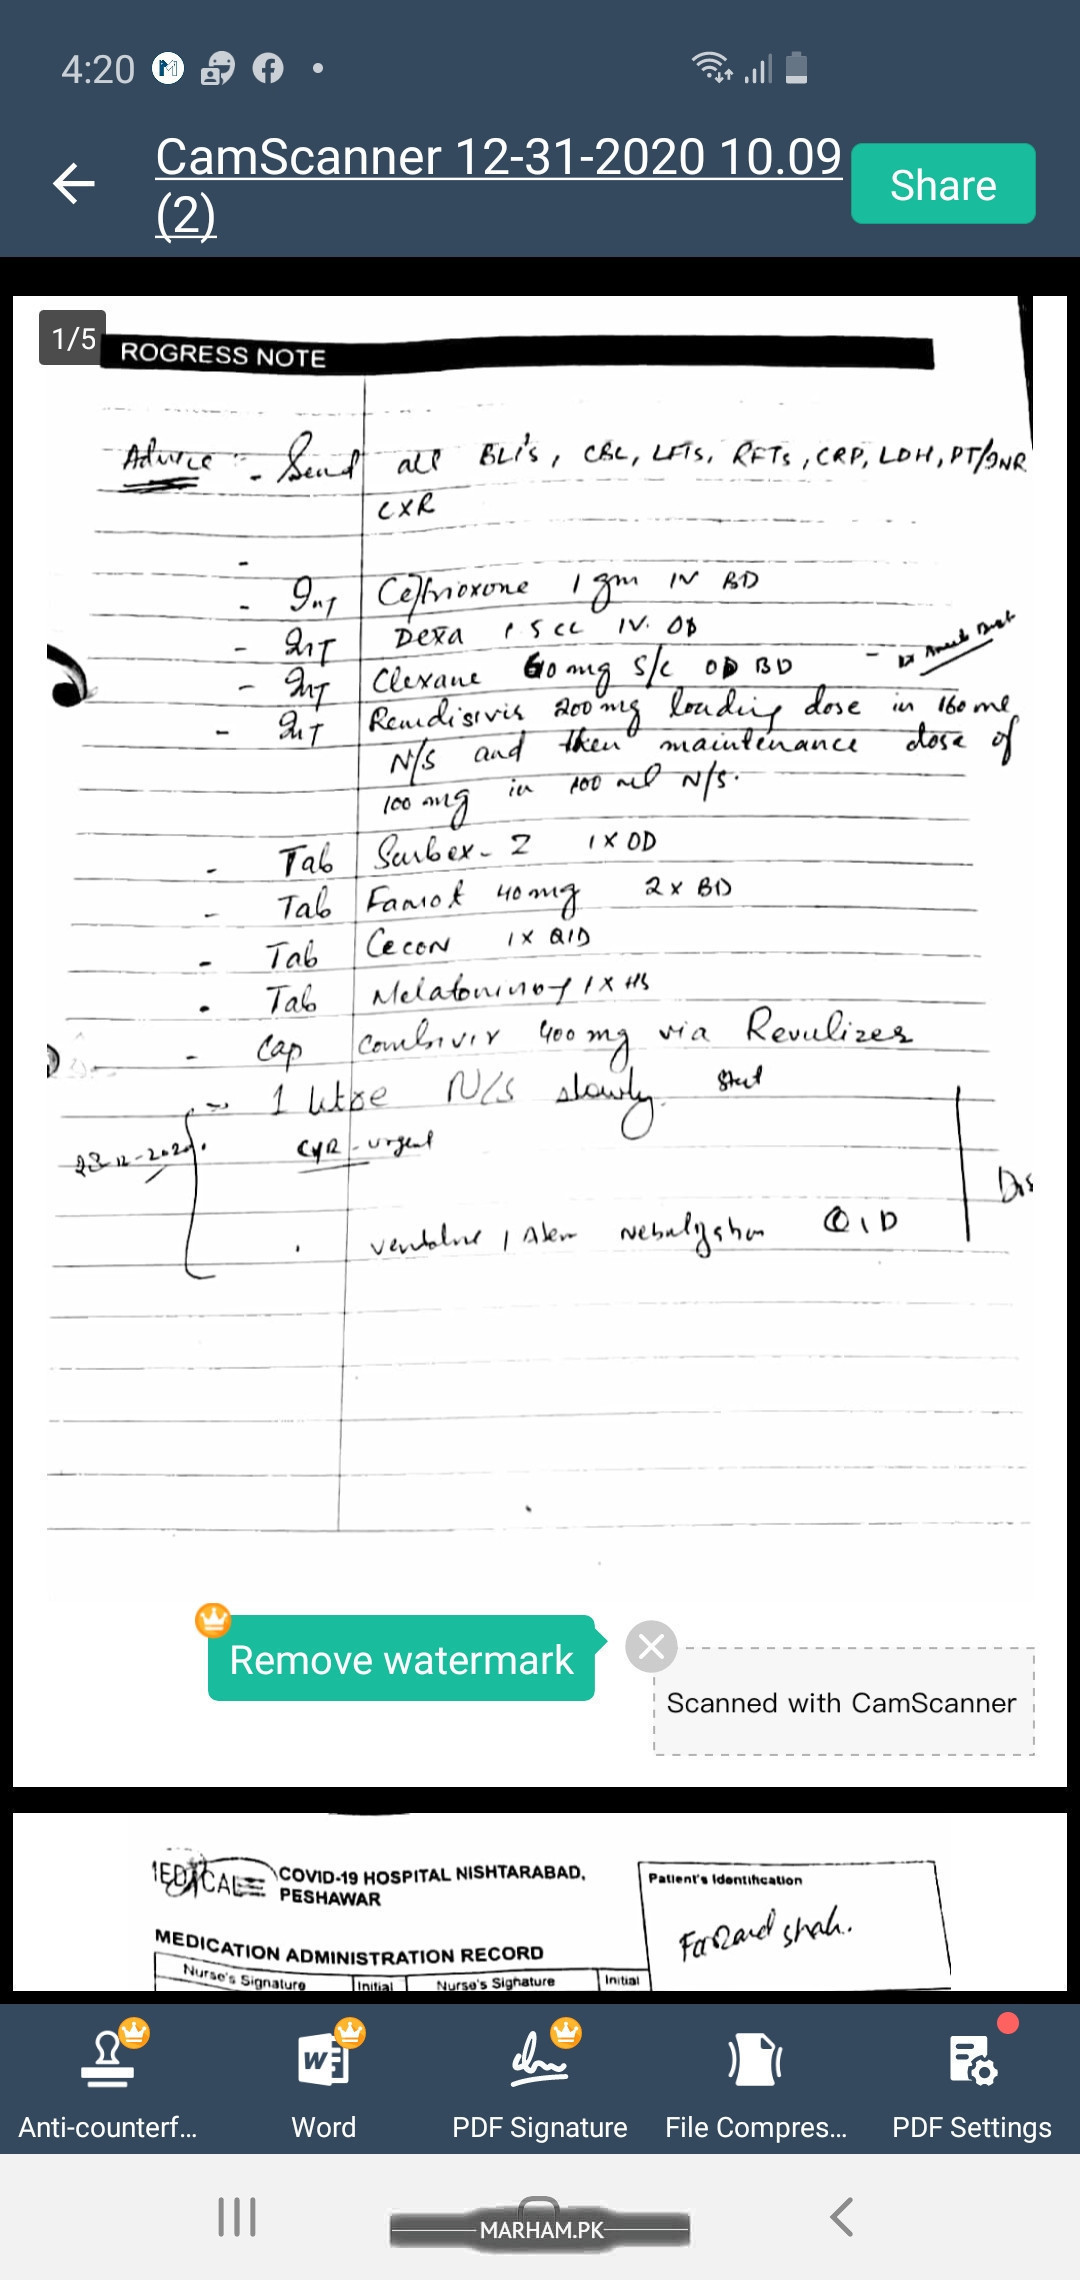 4:20
CamScanner 12-31-2020 10.09
(2)
Share
1/5
ROGRESS NOTE
Advice :- Send all BLI's, CBC, LFTs, RFTs, CRP, LDH, PT/INR
CXR
- Inj Ceftrioxone 1 gm IV BD
- Inj Dexa 1.5 cc IV. OD
- Inj Clexane 60 mg S/C OD BD
- Inj Remdisivis 200 mg loading dose in 160 ml
N/S and then maintenance dose of
100 mg in 100 ml N/S.
- Tab Surbex-Z 1 x OD
- Tab Famot 40 mg 2 x BD
- Tab Cecon 1 x QID
- Tab Melatonin 1 x HS
- Cap Combivir 400 mg via Revulizer
- 1 litre N/S slowly. Stat
23-12-2020. CXR - urgent
Dis
. Nebulization QID
Remove watermark
Scanned with CamScanner
MEDICAL COVID-19 HOSPITAL NISHTARABAD,
PESHAWAR
Patient's Identification
Farzand Shah.
MEDICATION ADMINISTRATION RECORD
Nurse's Signature Initial Nurse's Signature Initial
Anti-counterf... Word PDF Signature File Compres... PDF Settings
MARHAM.PK